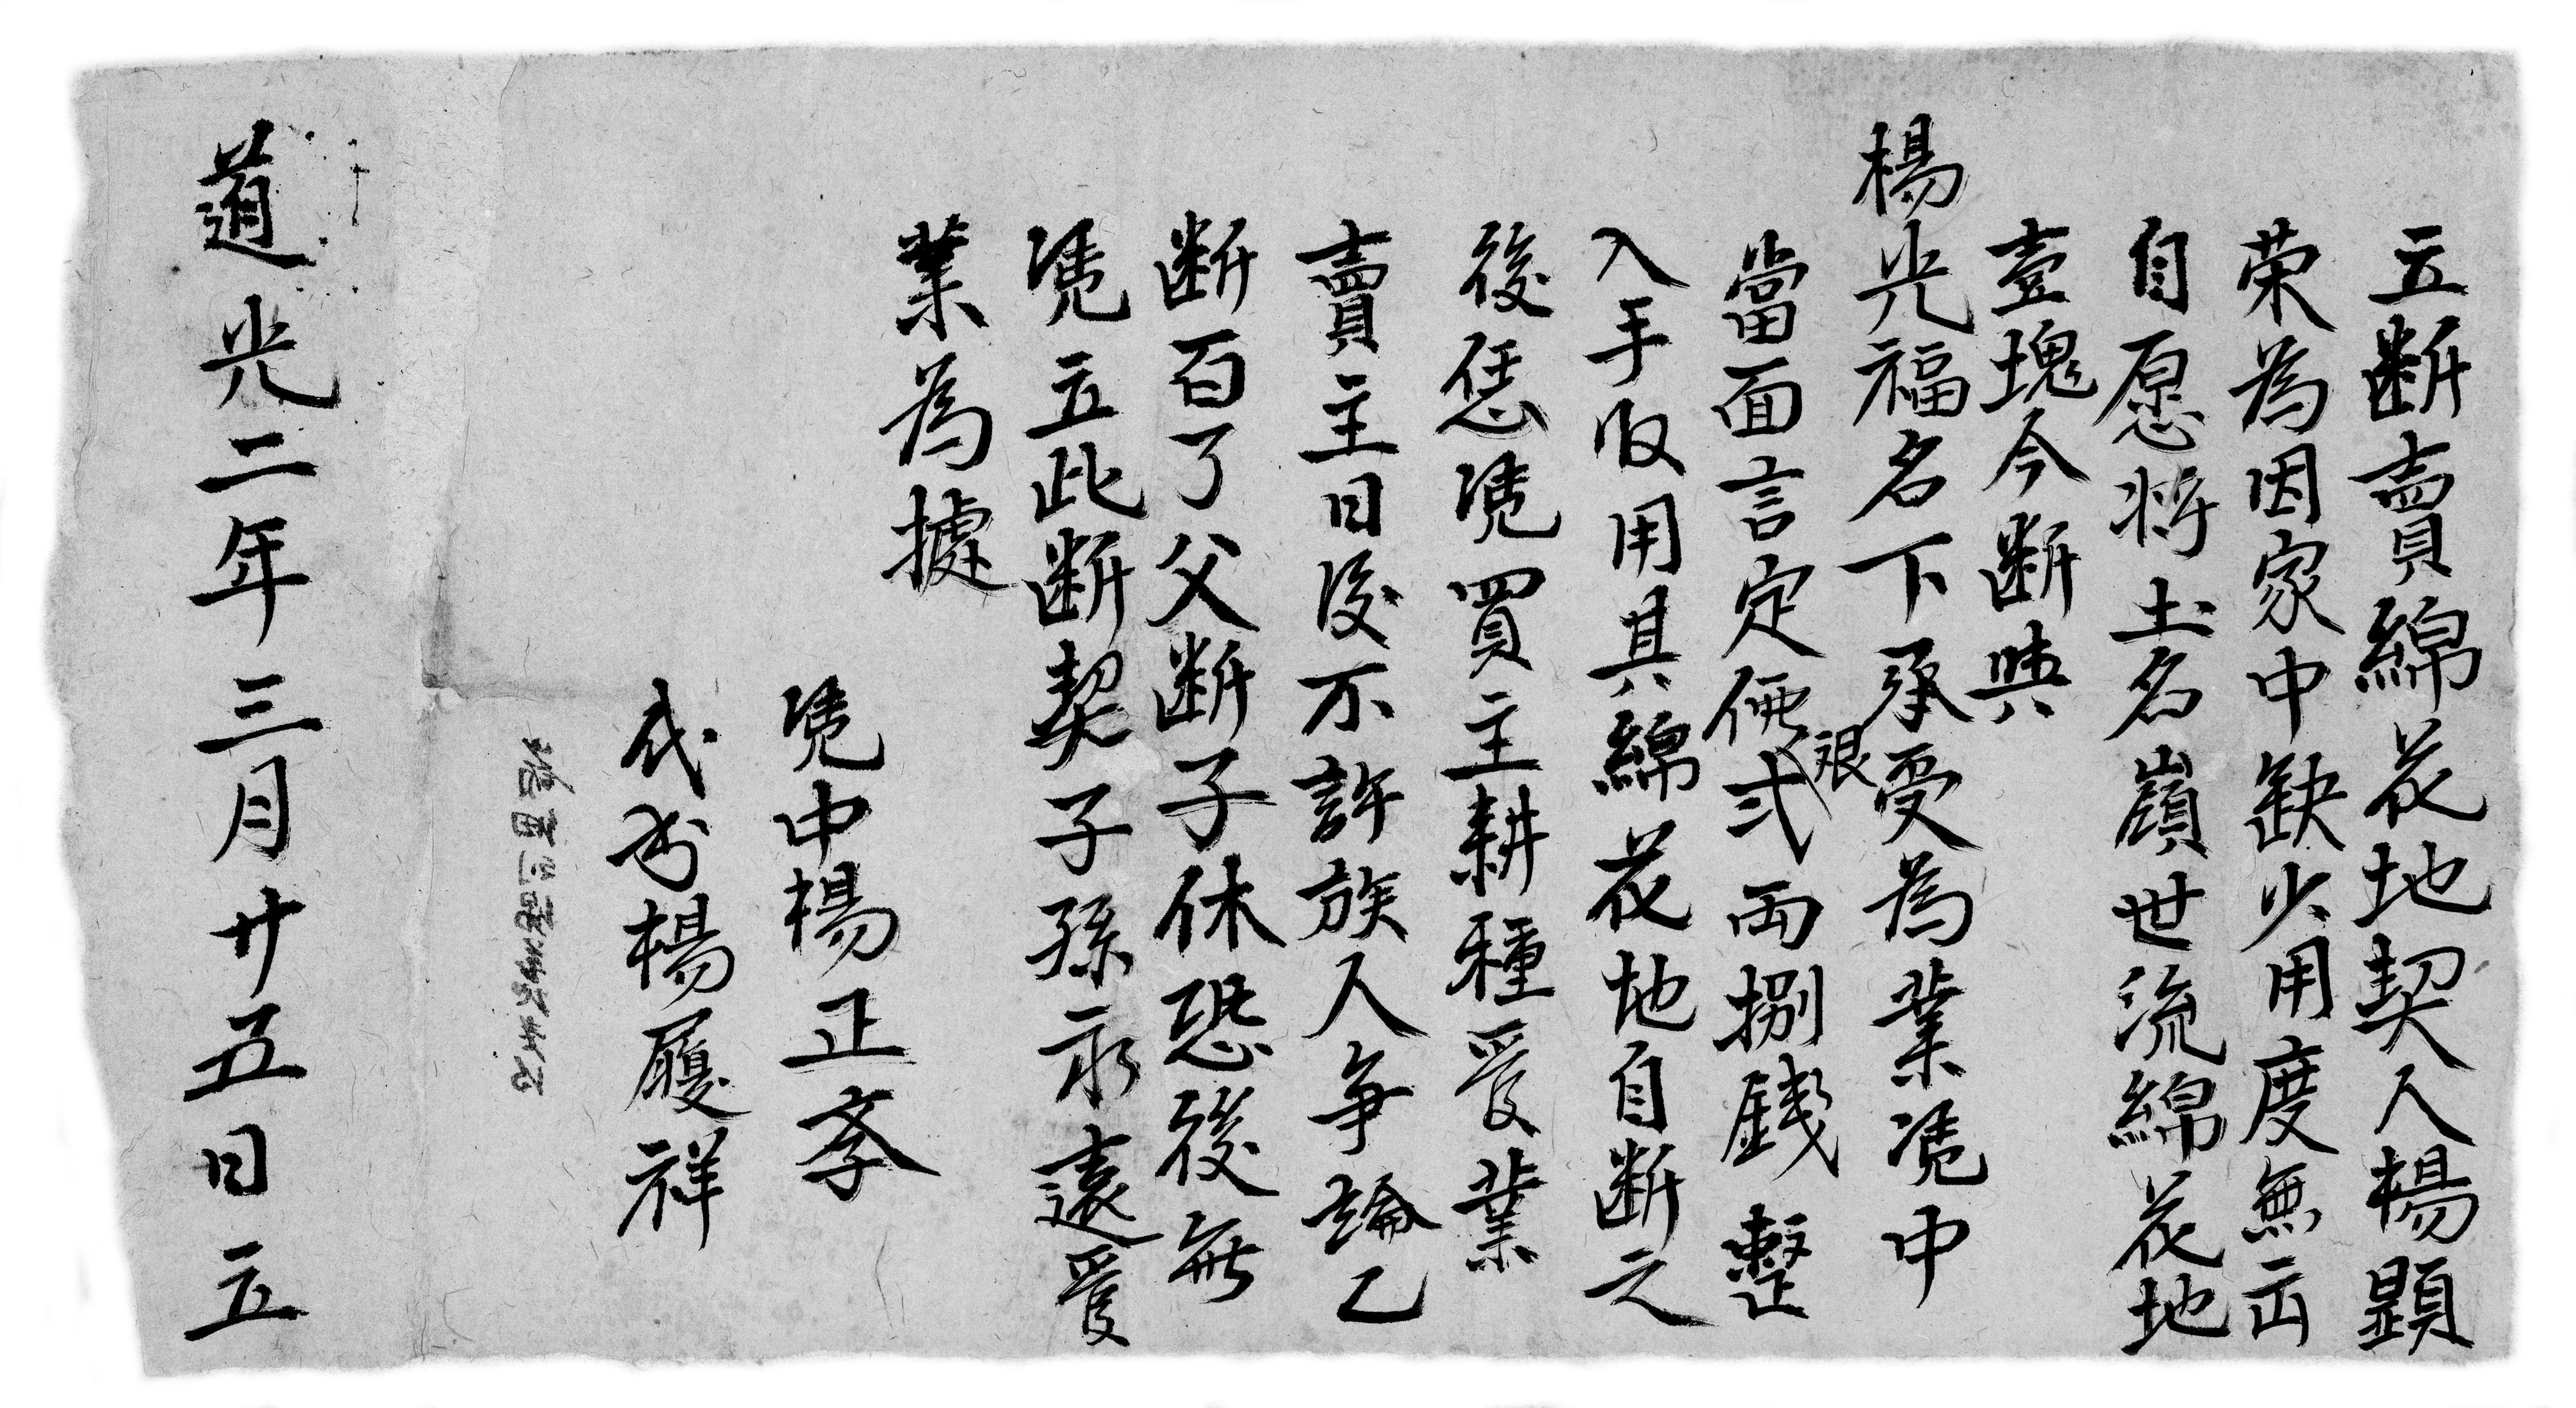 立断賣綿花地契人楊顕
荣為因家中缺少用度無出
自愿将土名嶺世流綿花地
壹塊今断與
楊光福名下承受為業凴中
當面言定價銀弍両捌錢整
入手收用其綿花地自断之
後恁凴買主耕種管業
賣主日後不許族人争論乙
断百了父断子休恐後無
凴立此断契子孫永遠管
業為據
凴中楊正孝
代書楊履祥
道光二年三月廿五日立